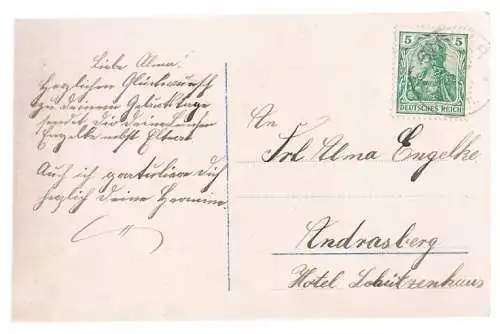 Liebe Alma!
Herzlichen Glückwunsch
zu deinem Geburtstage
sendet dir deine
Engelke nebst Eltern
Auch ich gratuliere dich
herzlich deine Hermine
5 5
DEUTSCHES REICH
An
Frl Alma Engelke
Andrasberg
Hotel Schützenhaus